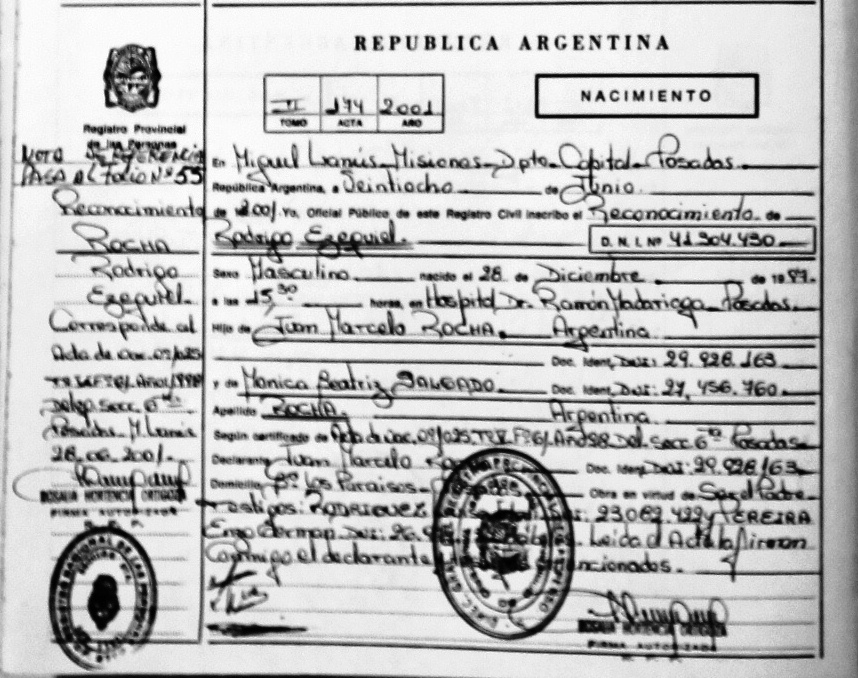 REPUBLICA ARGENTINA
II 174 2001
TOMO ACTA AÑO
NACIMIENTO
Registro Provincial
de las Personas
NOTA DE REFERENCIA
PASA al folio Nº 55
Reconocimiento
ROCHA
Rodrigo
Ezequiel.
Corresponde al
Acta de
Posadas
28.06.2001.
ROSALIA HORTENCIA ORTIGOZA
FIRMA AUTORIZADA
En Miguel Lanús - Misiones - Dpto. Capital - Posadas
República Argentina, a Veintiocho de Junio
de 2001 Yo, Oficial Público de este Registro Civil inscribo el Reconocimiento de
Rodrigo Ezequiel. D. N. I. Nº 41.304.430
Sexo Masculino nacido el 28 de Diciembre de 19 97.
a las 15,30 horas, en Hospital Dr. Ramón Madariaga Posadas.
Hijo de Juan Marcelo ROCHA. Argentina
Doc. Ident. DNI: 29.928.163
y de Monica Beatriz SALGADO Doc. Ident. DNI: 27,456.760.
Apellido ROCHA. Argentina
Según certificado de Acta de Del. Secc. 6ta Posadas
Declarante Juan Marcelo Doc. Ident. DNI: 29.928.163
Domicilio Los Paraisos Obra en virtud de Ser el Padre
Testigos: RODRIGUEZ 23.082.422 y PEREIRA
German DNI: 26. Leida el Acta la firman
Conmigo el declarante mencionados.
ROSALIA HORTENCIA ORTIGOZA
FIRMA AUTORIZADA